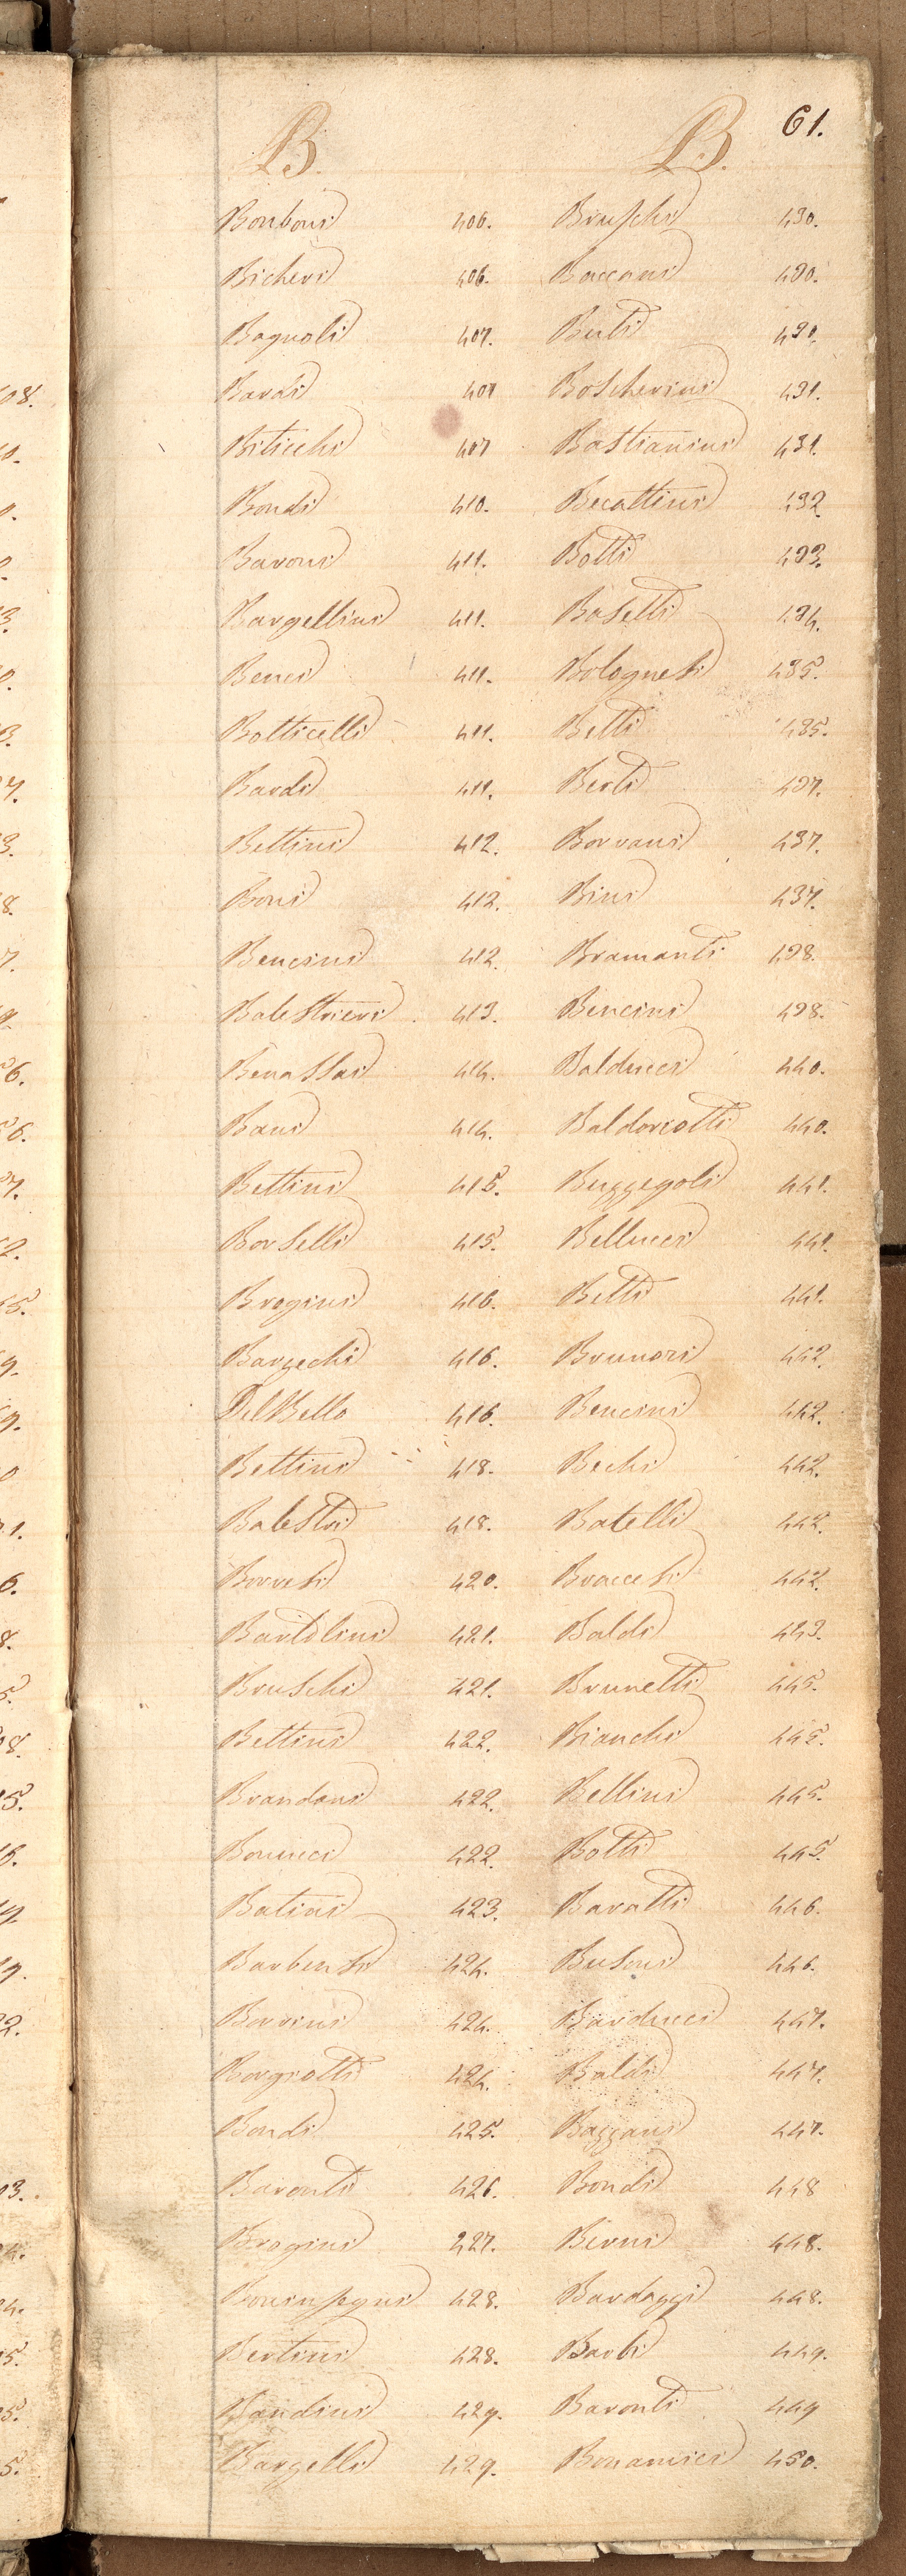 61.
B.
Bonboni 406.
Bicheri 406.
Bagnoli 407.
Bardi 407
Biticchi 407
Bondi 410.
Baroni 411.
Bargellini 411.
Benci 411.
Botticelli 411.
Bardi 411.
Bettini 412.
Boni 412.
Bencini 412.
Balestrieri 413.
Benassai 414.
Bani 414.
Bettini 415.
Borselli 415.
Brogini 416.
Barzechi 416.
Del Bello 416.
Bettini 418.
Balestri 418.
Borresi 420.
Bartolini 421.
Bruschi 421.
Bettini 422.
Brandani 422.
Bonucci 422.
Batini 423.
Barbensi 424.
Borrini 424.
Borgiotti 424.
Bondi 425.
Baronti 426.
Brogini 427.
Boninsegni 428.
Bertini 428.
Bandini 429.
Bargelli 429.
B.
Bruschi 430.
Baccani 430.
Berti 430.
Boscherini 431.
Bastianini 431.
Becattini 432
Botti 433.
Basetti 434.
Bolognesi 435.
Betti 435.
Berti 437.
Borrani 437.
Bini 437.
Bramanti 438.
Bencini 438.
Balducci 440.
Baldoriotti 440.
Buzzegoli 441.
Bellucci 441.
Betti 441.
Brunori 442.
Bencini 442.
Bechi 442.
Batelli 442.
Braccesi 442.
Baldi 443.
Brunetti 445.
Bianchi 445.
Bellini 445.
Botti 445.
Baratti 446.
Busoni 446.
Barducci 447.
Baldi 447.
Bazzani 447.
Bondi 448
Berni 448.
Bardazzi 448.
Barbi 449.
Baronti 449
Bonamici 450.